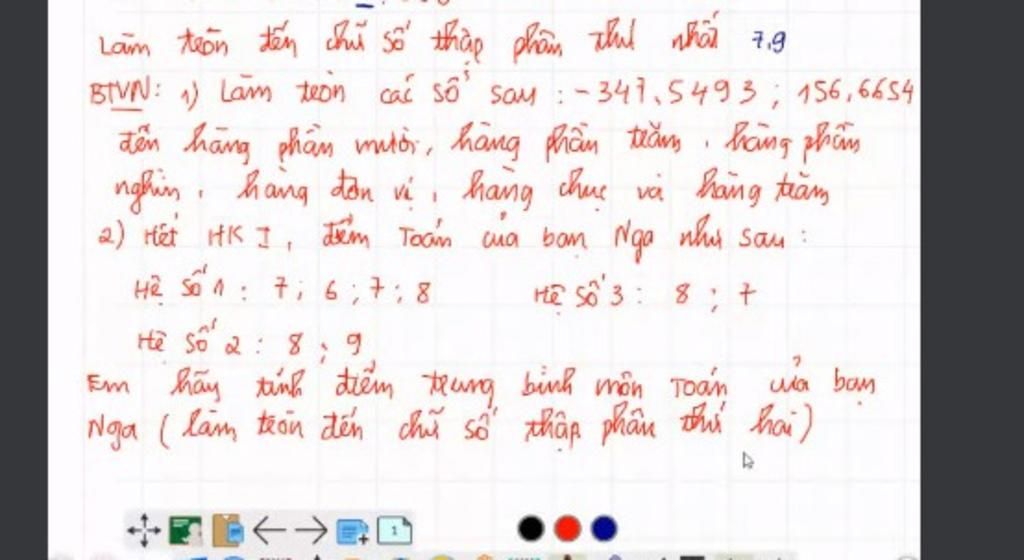 Làm tròn đến chữ số thập phân thứ nhất 7,9
BTVN: 1) Làm tròn các số sau : -347,5493 ; 156,6654
đến hàng phần mười, hàng phần trăm, hàng phần
nghìn, hàng đơn vị, hàng chục và hàng trăm
2) Hết HK I, điểm Toán của bạn Nga như sau :
Hệ số 1 : 7 ; 6 ; 7 ; 8 Hệ số 3 : 8 ; 7
Hệ số 2 : 8 ; 9
Em hãy tính điểm trung bình môn Toán của bạn
Nga ( làm tròn đến chữ số thập phân thứ hai )
1